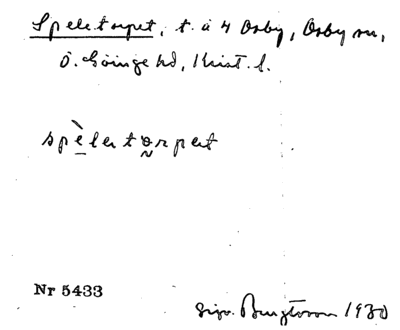 Speletorpet, t. å 4 Osby, Osby sn,
Ö. Göinge hd, Krist. l.
spèlertorpert
Nr 5433
Sigv. Bengtsson 1930